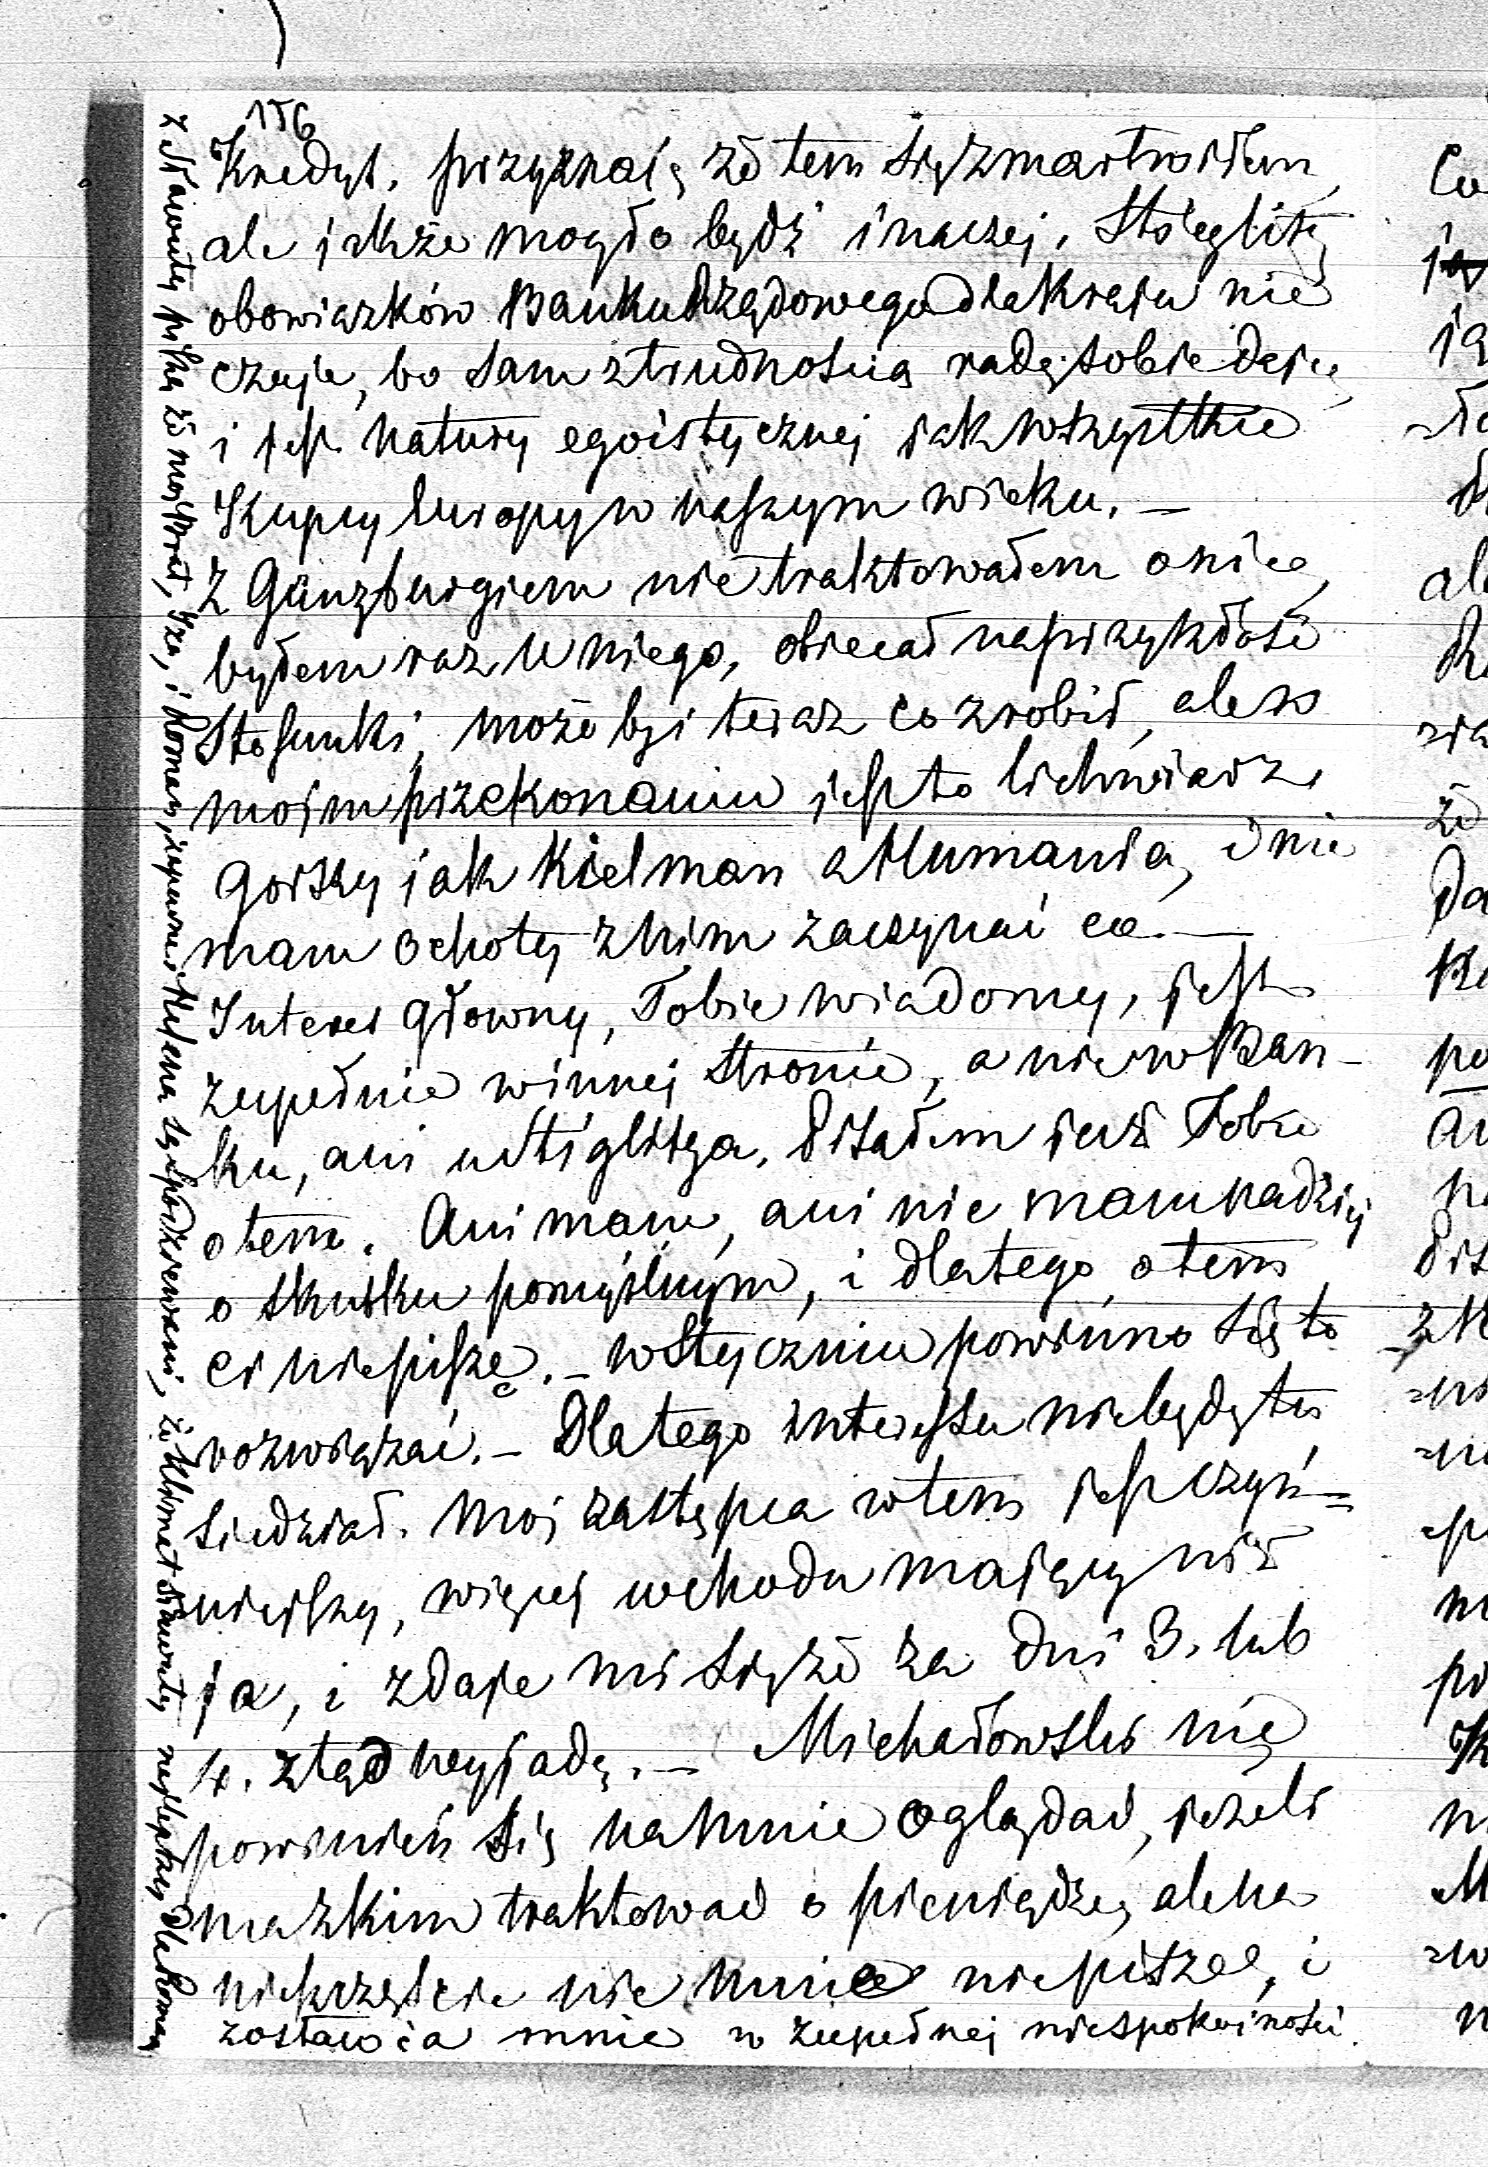 156
Kredyt. przyznaję żē tem się zmartwiłem,
ale jakże mogło bydź inaczej, Stieglitz
obowiązków Banku Rządowego dla Kraju nie
czuje, bo sam z trudnością radę sobie daje,
i jest natury egoistycznej jak wszystkie
Kupcy Europy w naszym wieku. —
Z Günzburgiem nie traktowałem o nic,
byłem raz u niego, obiecał na przykłość
stosunki, może by i teraz co zrobił, ale w
mojm przekonaniu jest to lichwiarz,
gorszy jak Kielman z Humania, i nie
mam ochoty z nim zaczynać co. —
Interes głowny, Tobie wiadomy, jest
zupełnie w innej stronie, a nie w Ban-
ku, ani u Stiglitza. Pisałem już Tobie
o tem. Ani mam, ani nie mam nadziej
o skutku pomyślnym, i dlatego o tem
ci nie piszę. — w Styczniu powinno się to
rozwiązać. — Dlatego interessu nie będę tu
siedział. Moj zastępca w tem jest czyn=
niejszy, więcej uchodu mający niż
ja, i zdaje mi się żē za dni 3. lub
4. ztąd wyjadę. — Michałowski nie
powinień się na mnie oglądać, jeżeli
ma z kim traktować o pieniądze, ale na
nieszczęście nic mnie nie pisze, i
zostawia mnie w zupełnej niespokojności.
z Sławuty piszą żē moj brat, Iza, i Roman, i zapewne Helena są spodziewani, że klimat Sławuty najlepszy dla Romana